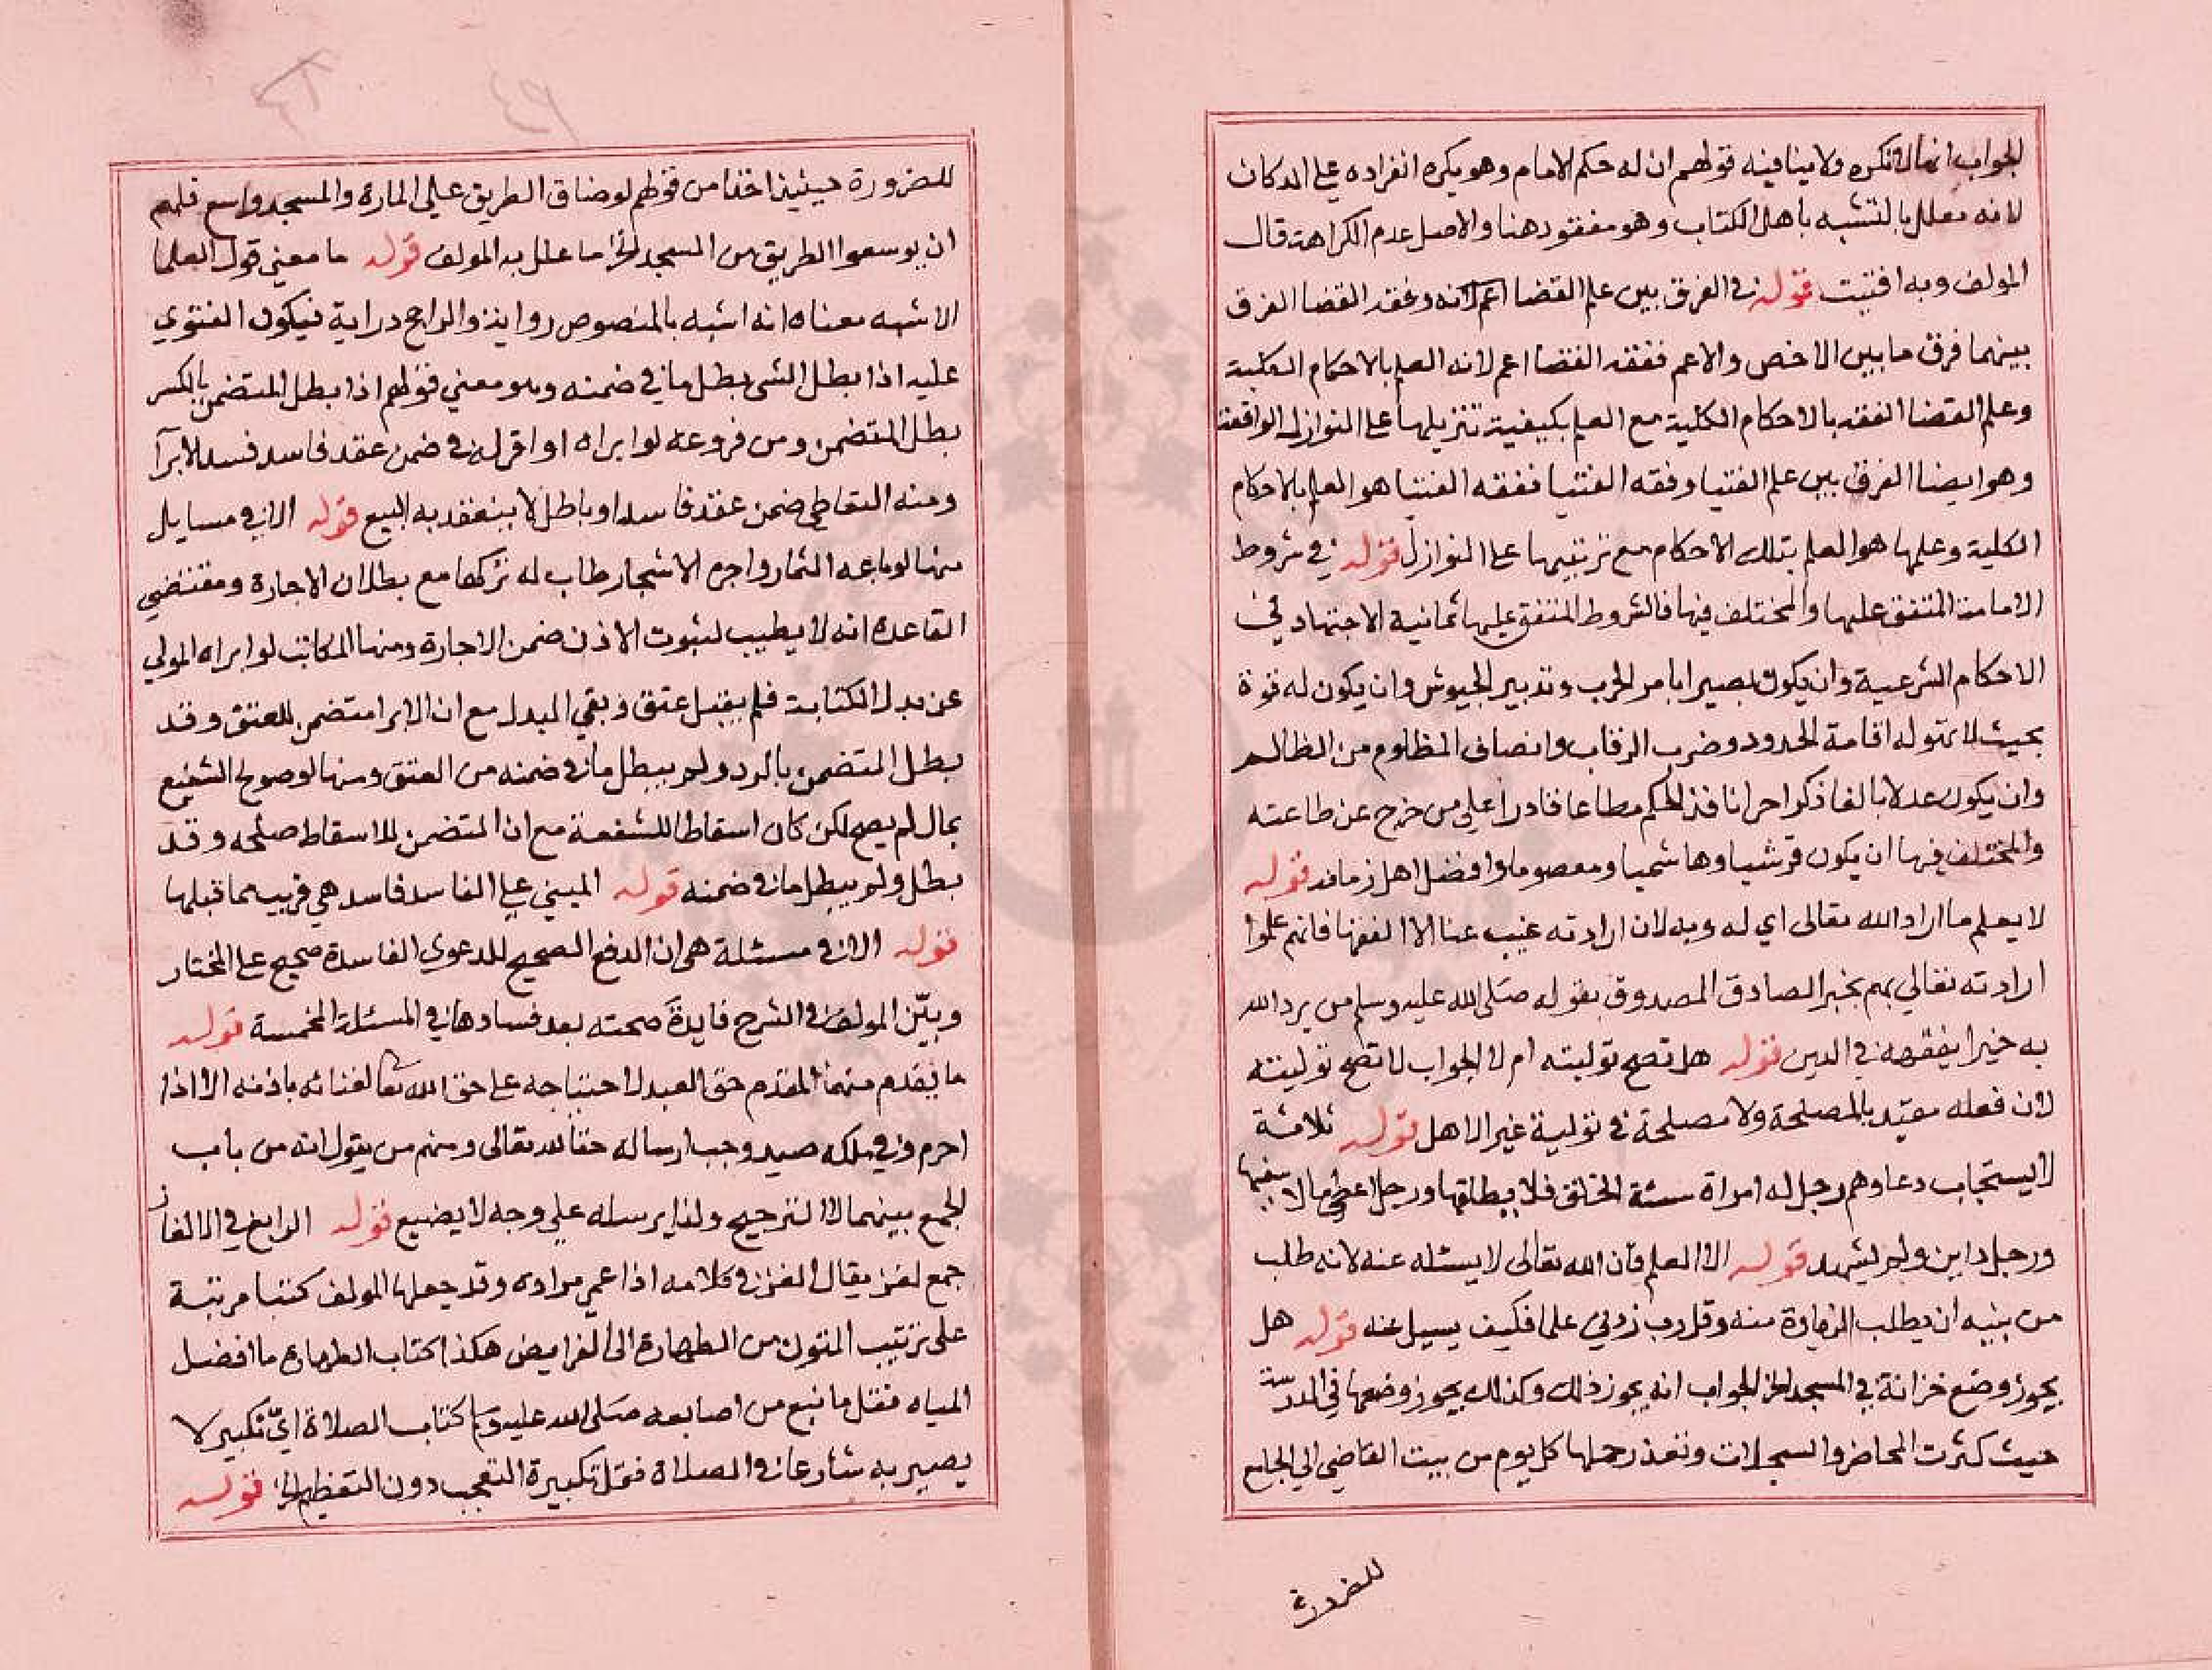 الجواب انها لا تكره ولا ينافيه قولهم ان له حكم الامام وهو يكره انفراده على الدكان
لانه معلل بالتشبه باهل الكتاب وهو مفقود هنا والاصل عدم الكراهة قال
المولف وبه افتيت قوله في الفرق بين علم القضا وفقه القضا الفرق
بينهما فرق ما بين الاخص والاعم ففقه القضا اعم لانه العلم بالاحكام الكلية
وعلم القضا الفقه بالاحكام الكلية مع العلم بكيفية تنزيلها على النوازل الواقعة
وهو ايضا الفرق بين علم الفتيا وفقه الفتيا ففقه الفتيا هو العلم بالاحكام
الكلية وعلمها هو العلم بتلك الاحكام مع ترتيبها على النوازل قوله في شروط
الامامة المتفق عليها والمختلف فيها فالشروط المتفق عليها ثمانية الاجتهاد في
الاحكام الشرعية وان يكون بصيرا بامر الحرب وتدبير الجيوش وان يكون له قوة
بحيث لا تهوله اقامة الحدود وضرب الرقاب وانصاف المظلوم من الظالم
وان يكون عدلا بالغا ذكرا حرا نافذ الحكم مطاعا قادرا على من خرج عن طاعته
والمختلف فيها ان يكون قرشيا وهاشميا ومعصوما وافضل اهل زمانه قوله
لا يعلم ما اراد الله تعالى اي له وبه لان ارادته غيب عنا الا الفقها فانهم علموا
ارادته تعالي بهم بخبر الصادق المصدوق بقوله صلى الله عليه وسلم من يرد الله
به خيرا يفقهه في الدين قوله هل تصح توليته ام لا الجواب لا تصح توليته
لان فعله مقيد بالمصلحة ولا مصلحة في تولية غير الاهل قوله ثلاثة
لا يستجاب دعاوهم رجل له امراة سئة الخلق فلا يطلقها ورجل اعطى مالا سفيها
ورجل داين ولم يشهد قوله الا العلم فان الله تعالى لا يسئله عنه لانه طلب
من نبيه ان يطلب الزيادة منه وقل رب زدني علما فكيف يسيل عنه قوله هل
يجوز وضع خزانة في المسجد الخ الجواب انه يجوز ذلك وكذلك يجوز وضعها في المدرسة
حيث كثرت المحاضر والسجلات وتعذر حملها كل يوم من بيت القاضي الي الجامع
للضرورة
للضرورة حينيذ اخذا من قولهم لو ضاق الطريق على المارة والمسجد واسع فلهم
ان يوسعوا الطريق من المسجد الخ ما علل به المولف قوله ما معني قول العلما
الاشبه معناه انه اشبه بالمنصوص رواية والراجح دراية فيكون الفتوي
عليه اذا بطل الشى بطل ما في ضمنه وهو معني قولهم اذا بطل المتضمن بالكسر
بطل المتضمن ومن فروعه لو ابراه او اقر له في ضمن عقد فاسد فسد الابرآ
ومنه التعاطي ضمن عقد فاسد او باطل لا ينعقد به البيع قوله الا في مسايل
منها لو باعه الثمار واجره الاشجار طاب له تركها مع بطلان الاجارة ومقتضي
القاعدة انه لا يطيب لثبوت الاذن ضمن الاجارة ومنها المكاتب لو ابراه المولي
عن بدل الكتابة فلم يقبل عتق وبقي البدل مع ان الابرا متضمن للعتق وقد
بطل المتضمن بالرد ولم يبطل ما في ضمنه من العتق ومنها لو صولح الشفيع
بمال لم يصح لكن كان اسقاطا للشفعة مع ان المتضمن للاسقاط صلحه وقد
بطل ولم يبطل ما في ضمنه قوله المبني على الفاسد فاسد هي قريبه مما قبلها
قوله الا في مسئلة هى ان الدفع الصحيح للدعوي الفاسدة صحيح على المختار
وبيّن المولف في الشرح فايدة صحته بعد فسادها في المسئلة المخمسة قوله
ما يقدم منهما المقدم حق العبد لاحتياجه على حق الله تعا لغنائه باذنه الا اذا
احرم وفي ملكه صيد وجب ارساله حقا لله تعالى ومنهم من يقول انه من باب
الجمع بينهما لا الترجيح ولذا يرسله على وجه لا يضيع قوله الرابع في الالغاز
جمع لغز يقال الغز في كلامه اذا عمي مراده وقد جعلها المولف كتبا مرتبة
على ترتيب المتون من الطهارة الى الفرايض هكذا كتاب الطهارة ما افضل
المياه فقل ما نبع من اصابعه صلى الله عليه وسلم كتاب الصلاة ايّ تكبير لا
يصير به شارعا في الصلاة فقل تكبيرة التعجب دون التعظيم الخ قوله